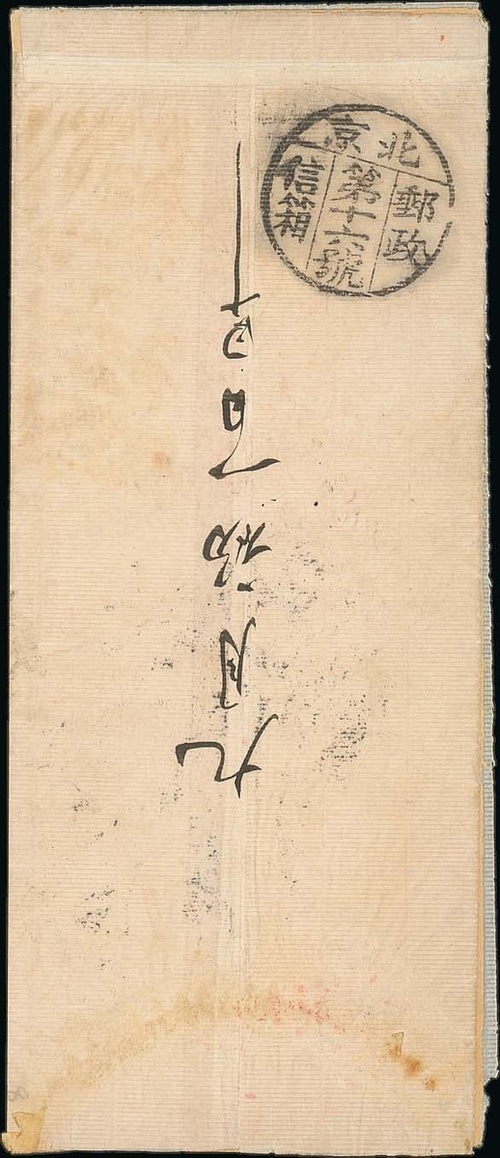 北京
郵政
第十六號
信箱
九月初一日